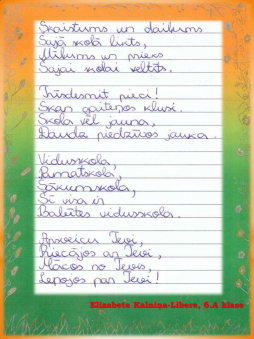 Skaistums un daiļums
Šajā skolā likts,
Mīlums un prieks
Šajai skolai veltīts.
Trīsdesmit pieci!
Skan gaiteņos klusi.
Skola vēl jauna,
Daudz piedzīvos jauka.
Vidusskola,
Pamatskola,
Sākumskola,
Šī visa ir
Babītes vidusskola.
Apsveicu Tevi,
Priecājos ar Tevi,
Mācos no Tevis,
Lepojos par Tevi!
Elizabete Kalniņa-Lībere, 6.A klase